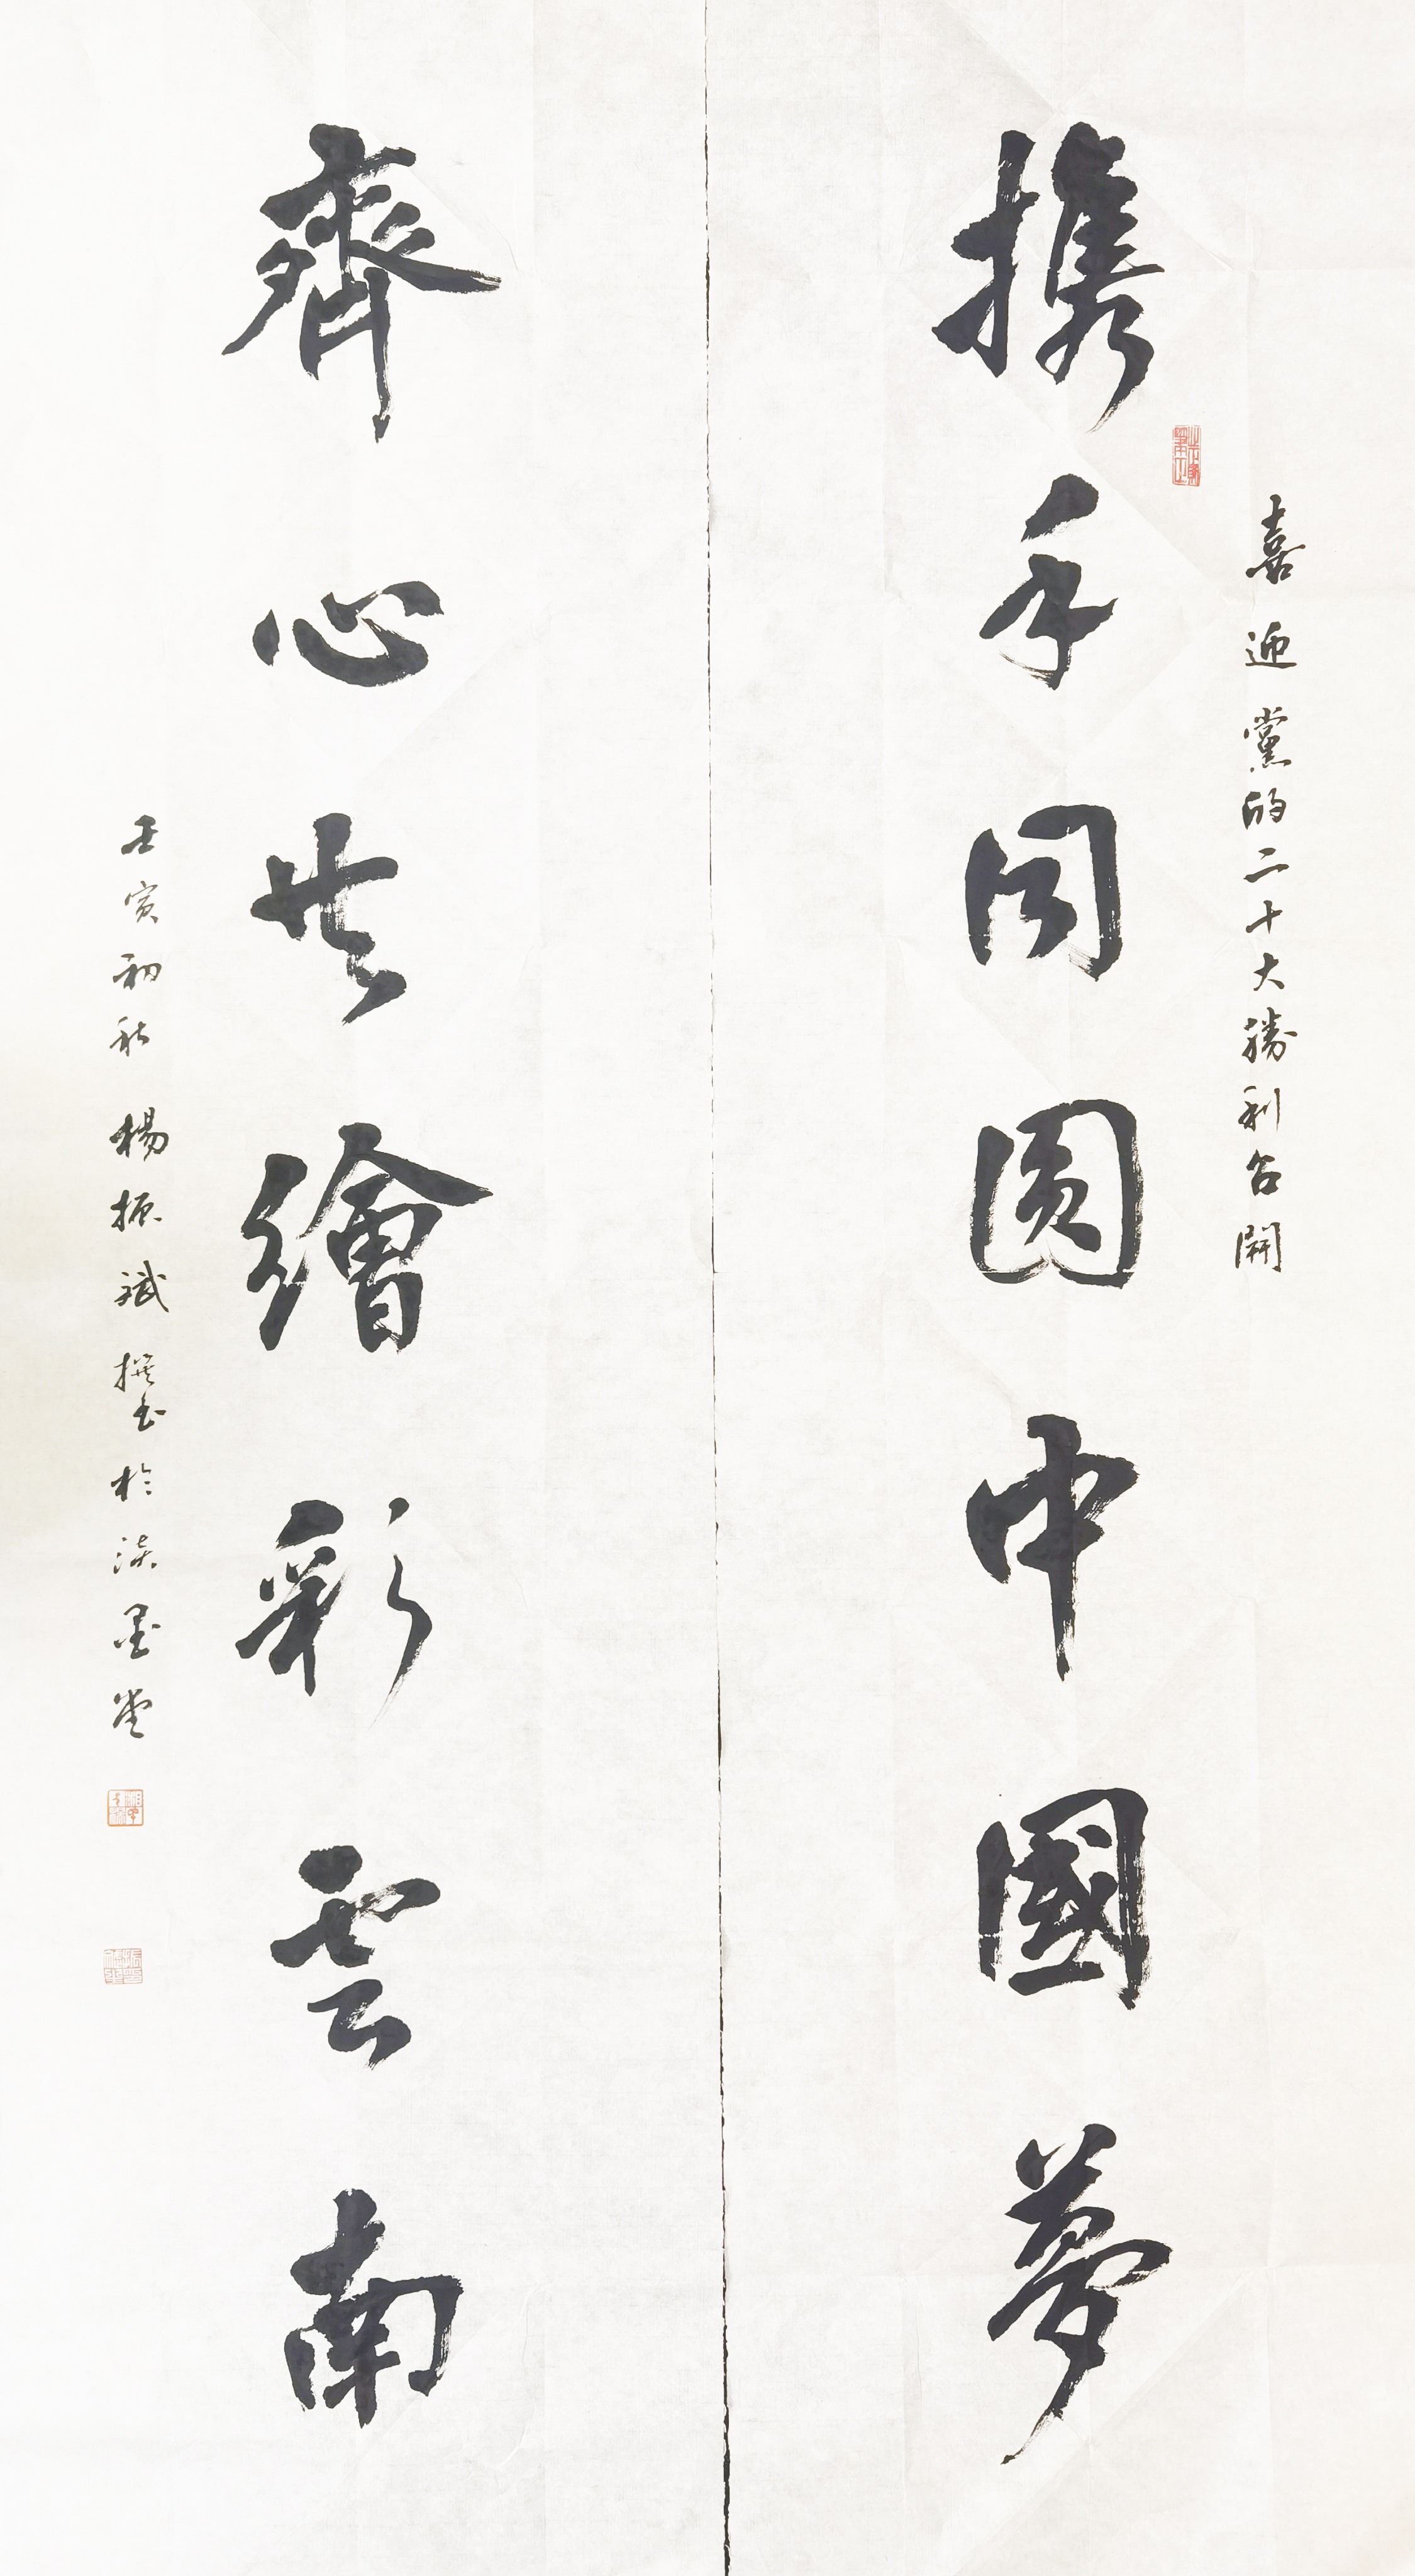 喜迎黨的二十大勝利召開
攜手同圓中國夢
齊心共繪彩雲南
壬寅初秋楊振斌撰書於淡墨堂